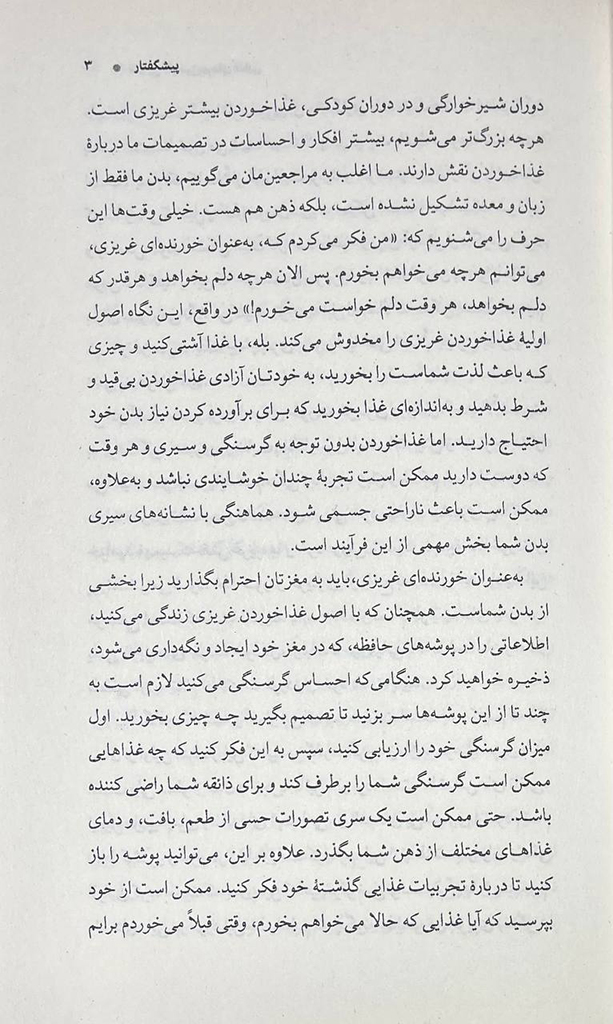 پیشگفتار • ۳
دوران شیرخوارگی و در دوران کودکی، غذاخوردن بیشتر غریزی است.
هرچه بزرگ‌تر می‌شویم، بیشتر افکار و احساسات در تصمیمات ما دربارهٔ
غذاخوردن نقش دارند. ما اغلب به مراجعین‌مان می‌گوییم، بدن ما فقط از
زبان و معده تشکیل نشده است، بلکه ذهن هم هست. خیلی وقت‌ها این
حرف را می‌شنویم که: «من فکر می‌کردم که، به‌عنوان خورنده‌ای غریزی،
می‌توانم هرچه می‌خواهم بخورم. پس الان هرچه دلم بخواهد و هرقدر که
دلم بخواهد، هر وقت دلم خواست می‌خورم!» در واقع، این نگاه اصول
اولیهٔ غذاخوردن غریزی را مخدوش می‌کند. بله، با غذا آشتی‌کنید و چیزی
که باعث لذت شماست را بخورید، به خودتان آزادی غذاخوردن بی‌قید و
شرط بدهید و به‌اندازه‌ای غذا بخورید که برای برآورده کردن نیاز بدن خود
احتیاج دارید. اما غذاخوردن بدون توجه به گرسنگی و سیری و هر وقت
که دوست دارید ممکن است تجربهٔ چندان خوشایندی نباشد و به‌علاوه،
ممکن است باعث ناراحتی جسمی شود. هماهنگی با نشانه‌های سیری
بدن شما بخش مهمی از این فرآیند است.
به‌عنوان خورنده‌ای غریزی،باید به مغزتان احترام بگذارید زیرا بخشی
از بدن شماست. همچنان که با اصول غذاخوردن غریزی زندگی می‌کنید،
اطلاعاتی را در پوشه‌های حافظه، که در مغز خود ایجاد و نگه‌داری می‌شود،
ذخیره خواهید کرد. هنگامی‌که احساس گرسنگی می‌کنید لازم است به
چند تا از این پوشه‌ها سر بزنید تا تصمیم بگیرید چه چیزی بخورید. اول
میزان گرسنگی خود را ارزیابی کنید، سپس به این فکر کنید که چه غذاهایی
ممکن است گرسنگی شما را برطرف کند و برای ذائقه شما راضی کننده
باشد. حتی ممکن است یک سری تصورات حسی از طعم، بافت، و دمای
غذاهای مختلف از ذهن شما بگذرد. علاوه بر این، می‌توانید پوشه را باز
کنید تا دربارهٔ تجربیات غذایی گذشتهٔ خود فکر کنید. ممکن است از خود
بپرسید که آیا غذایی که حالا می‌خواهم بخورم، وقتی قبلاً می‌خوردم برایم